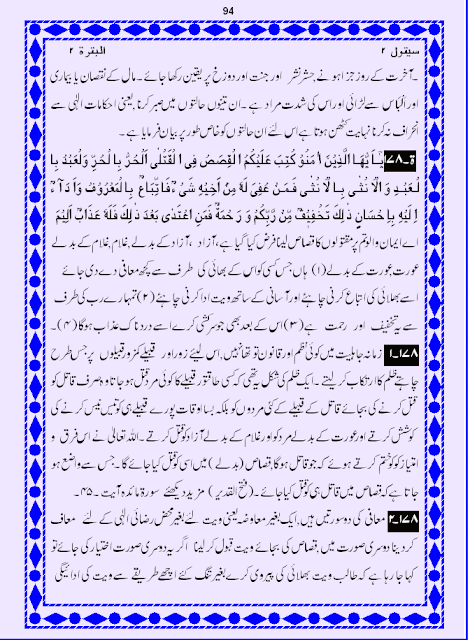 94
سیقول ۲ البقرۃ ۲
۔آخرت کے روز جزا ہونے حشر نشر اور جنت اور دوزخ پر یقین رکھا جائے۔ مال کے نقصان یا بیماری
اور الْبَاس سے لڑائی اور اس کی شدت مراد ہے۔ ان تینوں حالتوں میں صبر کرنا، یعنی احکامات الٰہی سے
انحراف نہ کرنا نہایت کٹھن ہوتا ہے اس لئے ان حالتوں کو خاص طور پر بیان فرمایا ہے۔
ق۔۱۷۸ يٰٓاَ يُّهَا الَّذِيْنَ اٰ مَنُوْ كُتِبَ عَلَيْكُمُ الْقِصَصُ فِى الْقَتْلٰى اَلْحُرُّ بِا لْحُرِّ وَلْعَبْدُ بِا
لْعَبْدِ وَ الْاُ نْثٰى بِا لْاُ نْثٰى فَمَنْ عُفِىَ لَهٗ مِنْ اَخِيْهِ شَىْ ءٌ فَاتِّبَا عٌ بِا لْمَعْرُوْفِ وَ اَدَ آ ءٌ
اِ لَيْهِ بِاِ حْسَانٍ ذٰ لِكَ تَخْفِيْفٌ مِّنْ رَّبِّكُمْ وَ رَحْمَةٌ فَمَنِ اعْتَدٰى بَعْدَ ذٰلِكَ فَلَهٗ عَذَابٌ اَلِيْمٌ
اے ایمان والو تم پر مقتولوں کا قصاص لینا فرض کیا گیا ہے، آزاد، آزاد کے بدلے، غلام، غلام کے بدلے
عورت، عورت کے بدلے (۱) ہاں جس کسی کو اس کے بھائی کی طرف سے کچھ معافی دے دی جائے
اسے بھلائی کی اتباع کرنی چاہئے اور آسانی کے ساتھ دیت ادا کرنی چاہئے (۲) تمہارے رب کی طرف
سے یہ تخفیف اور رحمت ہے (۳) اس کے بعد بھی جو سرکشی کرے اسے دردناک عذاب ہوگا (۴)۔
۱۷۸۔۱ زمانہ جاہلیت میں کوئی نظم اور قانون تو تھا نہیں، اس لیئے زور اور قبیلے کمزور قبیلوں پر جس طرح
چاہتے ظلم کا ارتکاب کر لیتے۔ ایک ظلم کی شکل یہ تھی کہ کسی طاقتور قبیلے کا کوئی مرد قتل ہو جاتا تو وہ صرف قاتل کو
قتل کرنے کی بجائے قاتل کے قبیلے کے کئی مردوں کو بلکہ بسا اوقات پورے قبیلے ہی کو تہس نہس کرنے کی
کوشش کرتے اور عورت کے بدلے مرد کو اور غلام کے بدلے آزاد کو قتل کرتے۔ اللہ تعالیٰ نے اس فرق و
امتیاز کو کو ختم کرتے ہوئے کہ جو قاتل ہوگا، قصاص (بدلے) میں اسی کو قتل کیا جائے گا۔ جس سے واضح ہو
جاتا ہے کہ قصاص میں قاتل ہی کو قتل کیا جائے۔ (فتح القدیر) مزید دیکھئے سورۃ مائدہ آیت۔ ۴۵۔
۱۷۸۔۲ معافی کی دو صورتیں ہیں، ایک بغیر معاوضہ یعنی دیت لئے بغیر محض رضائی الٰہی کے لئے معاف
کر دینا دوسری صورت میں، قصاص کی بجائے دیت قبول کر لینا اگر یہ دوسری صورت اختیار کی جائے تو
کہا جا رہا ہے کہ طالب دیت بھلائی کی پیروی کرے، بغیر تنگ کئے اچھے طریقے سے دیت کی ادائیگی